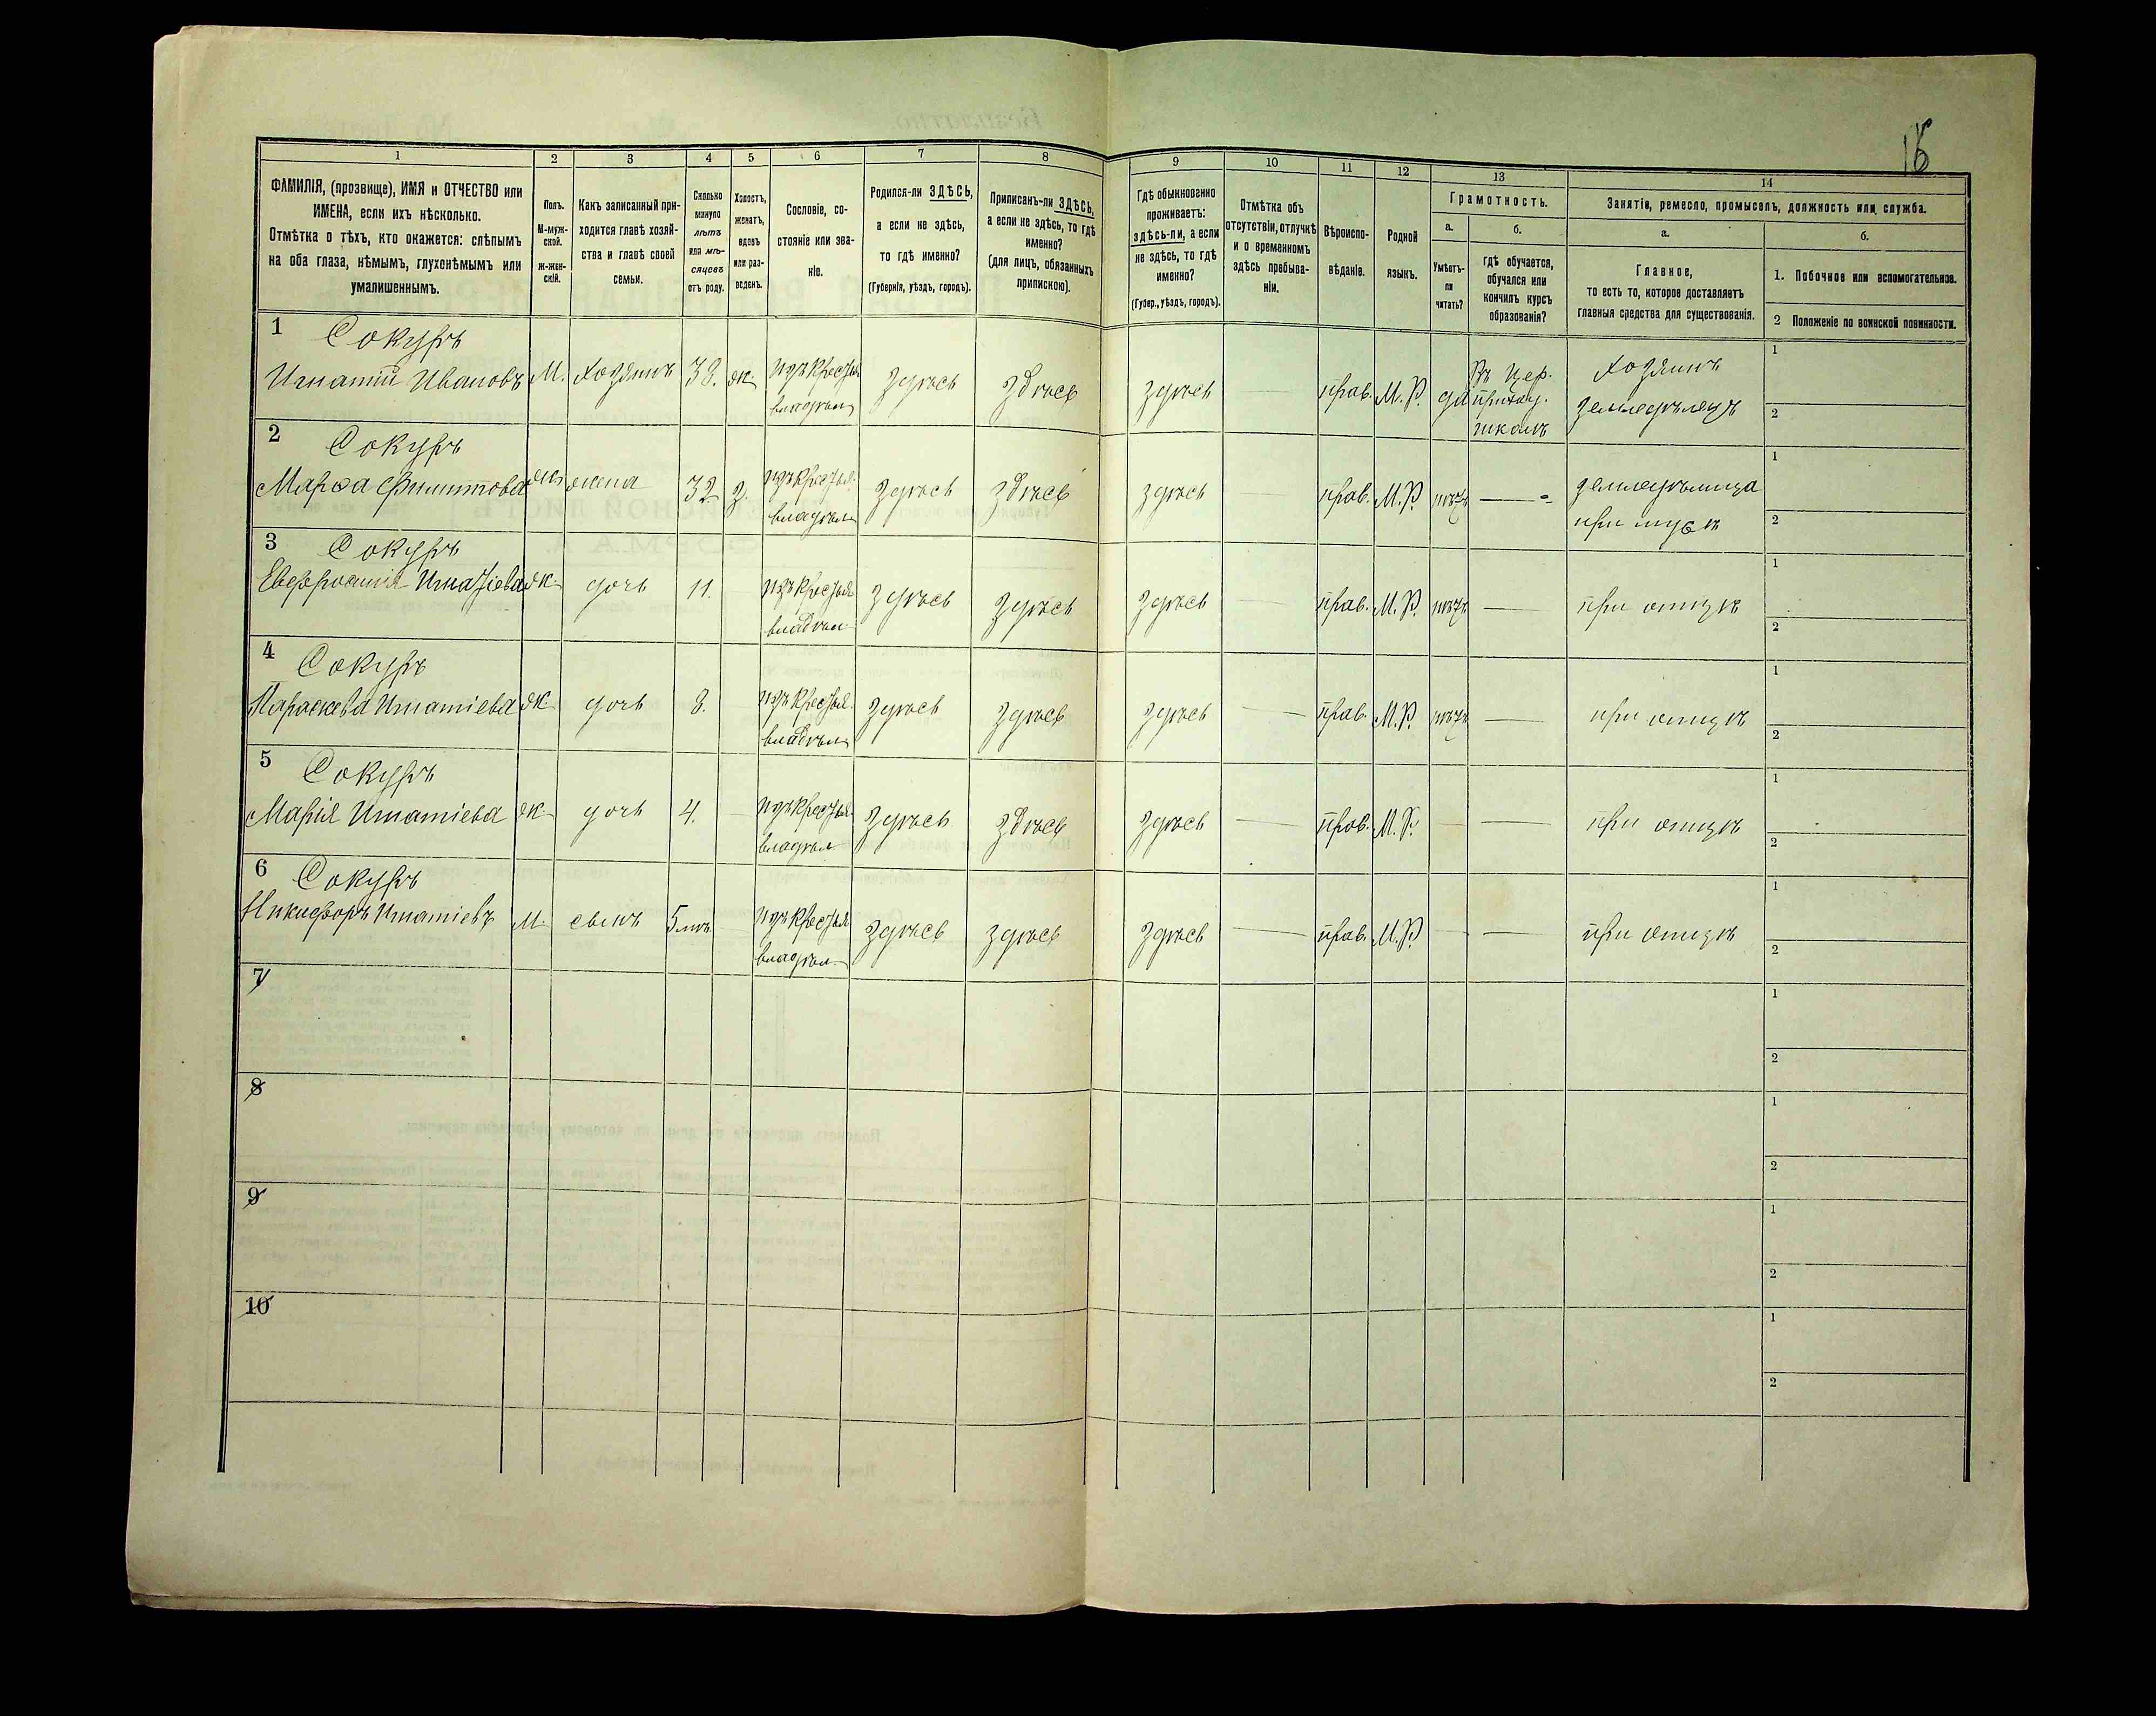 16
1
2
3
4
5
6
7
8
9
10
11
12
13
14
ФАМИЛІЯ, (прозвище), ИМЯ и ОТЧЕСТВО или
ИМЕНА, если ихъ нѣсколько.
Отмѣтка о тѣхъ, кто окажется: слѣпымъ
на оба глаза, нѣмымъ, глухонѣмымъ или
умалишеннымъ.
Полъ.
М-муж-
ской.
Ж-жен-
скій.
Какъ записанный при-
ходится главѣ хозяй-
ства и главѣ своей
семьи.
Сколько
минуло
лѣтъ
или мѣ-
сяцевъ
отъ роду.
Холостъ,
женатъ,
вдовъ
или раз-
веденъ.
Сословіе, со-
стояніе или зва-
ніе.
Родился-ли ЗДѢСЬ,
а если не здѣсь,
то гдѣ именно?
(Губернія, уѣздъ, городъ).
Приписанъ-ли ЗДѢСЬ,
а если не здѣсь, то гдѣ
именно?
(для лицъ, обязанныхъ
припискою).
Гдѣ обыкновенно
проживаетъ:
здѣсь-ли, а если
не здѣсь, то гдѣ
именно?
(Губер., уѣздъ, городъ).
Отмѣтка объ
отсутствіи, отлучкѣ
и о временномъ
здѣсь пребыва-
ніи.
Вѣроиспо-
вѣданіе.
Родной
языкъ.
Грамотность.
а.
Умѣетъ-
ли
читать?
б.
гдѣ обучается,
обучался или
кончилъ курсъ
образованія?
Занятіе, ремесло, промыселъ, должность или служба.
а.
Главное,
то есть то, которое доставляетъ
главныя средства для существованія.
б.
1. Побочное или вспомогательное.
2 Положеніе по воинской повинности.
1 Сокуръ
Игнатій Ивановъ М. хозяинъ 38. ж. изъ крестья владѣл здѣсь здѣсь здѣсь — прав. М. Р. да Въ цер. приход. школѣ хозяинъ земледѣлецъ 1 2
2 Сокуръ
Марѳа Филиппова ж жена 32 з. изъ крестья. владѣл здѣсь здѣсь здѣсь — прав. М. Р. нѣтъ — земледѣлица при мужѣ 1 2
3 Сокуръ
Евфросинія Игнатіева ж. дочь 11. изъ крестья владѣл. здѣсь здѣсь здѣсь — прав. М. Р. нѣтъ — при отцѣ 1 2
4 Сокуръ
Параскева Игнатіева ж. дочь 8. изъ крестья. владѣл здѣсь здѣсь здѣсь — прав. М. Р. нѣтъ — при отцѣ 1 2
5 Сокуръ
Марія Игнатіева ж. дочь 4. — изъ крестья. владѣл здѣсь здѣсь здѣсь — прав. М. Р. — — при отцѣ 1 2
6 Сокуръ
Никифоръ Игнатіевъ М. сынъ 5 мѣ. — изъ крестья владѣл. здѣсь здѣсь здѣсь — прав. М. Р. — — при отцѣ 1 2
7 1 2
8 1 2
9 1 2
10 1 2